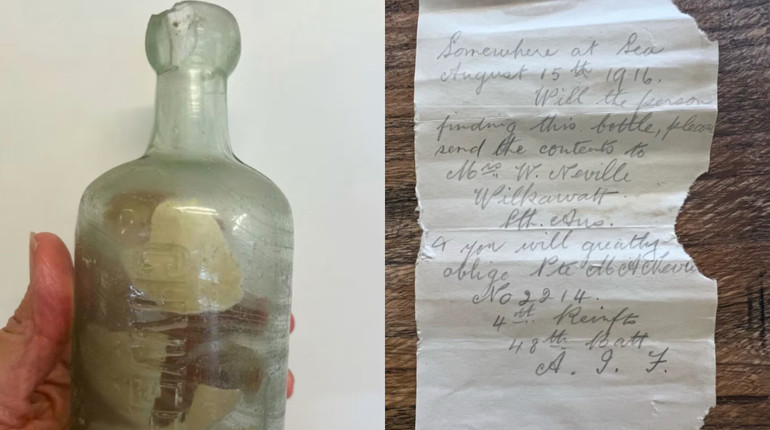 Somewhere at Sea
August 15th 1916.
Will the person
finding this bottle, pleas
send the contents to
Mrs. W. Neville
Wilkawatt.
Sth. Aus.
& you will greatly
oblige Pte M A Nevil
No 2214.
4th Reinfts
48th Batt
A. I. F.